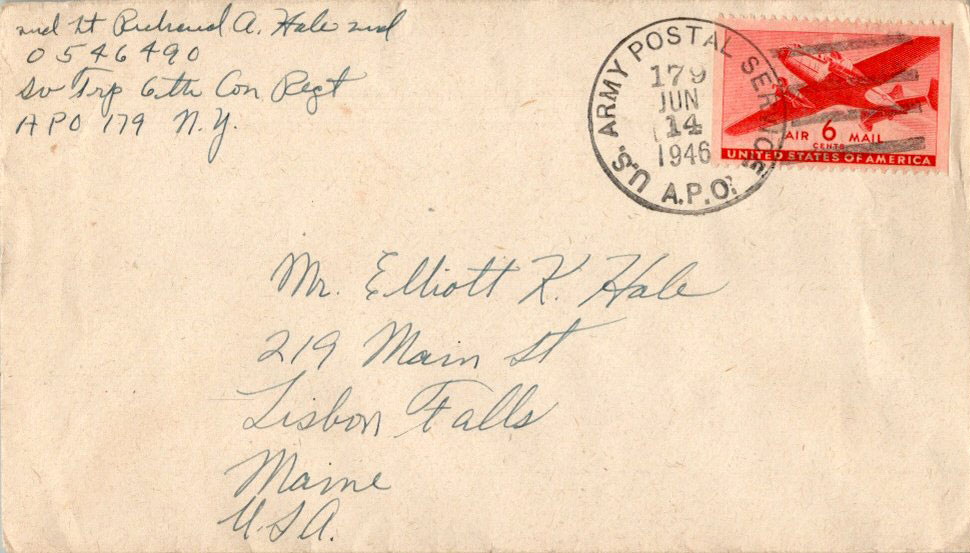 2nd Lt Richard A. Hale 2nd
0546490
Sv Trp 6th Con Regt
APO 179 N.Y.
U.S. ARMY POSTAL SERVICE
179
JUN
14
1946
A.P.O.
AIR 6 MAIL
CENTS
UNITED STATES OF AMERICA
Mr. Elliott K. Hale
219 Main St
Lisbon Falls
Maine
U.S.A.